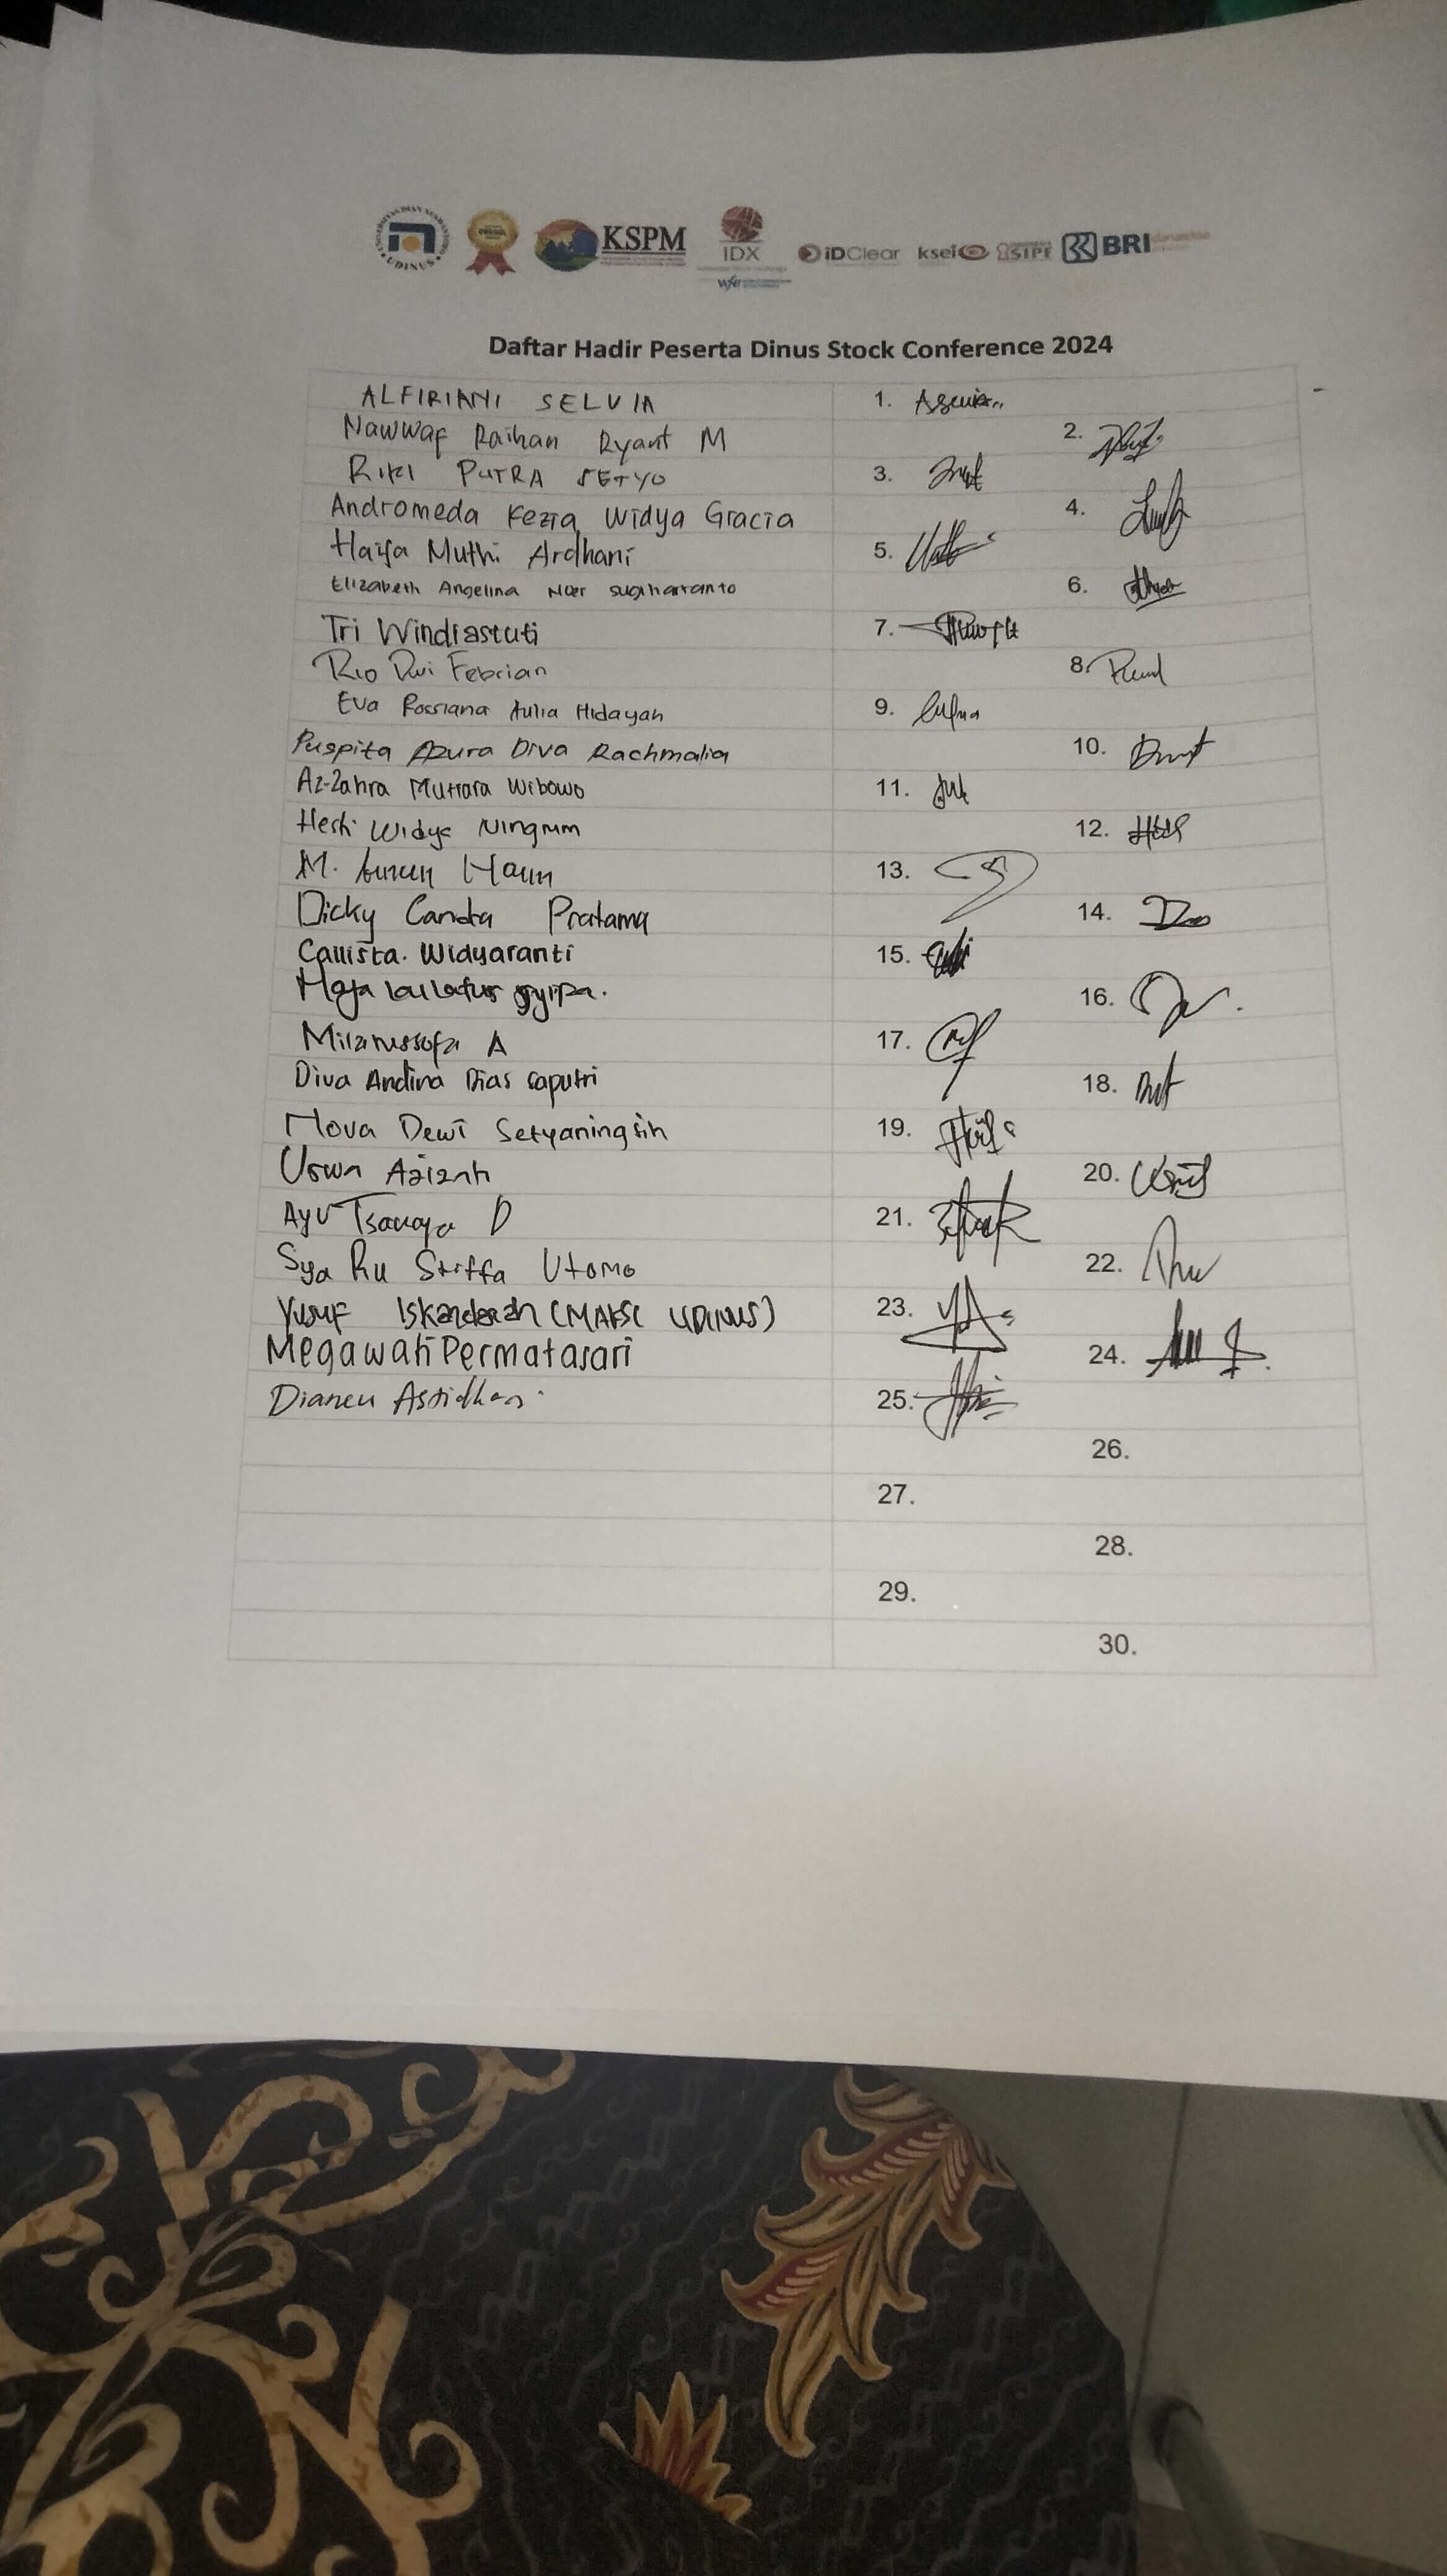 UDINUS
KSPM
IDX
iDClear
ksei
SIPF
BRI
Daftar Hadir Peserta Dinus Stock Conference 2024
ALFIRIANI SELVIA 1.
Nawwaf Raihan Ryant M 2.
RIKI PUTRA SETYO 3.
Andromeda Kezia Widya Gracia 4.
Haifa Muthi Ardhani 5.
Elizabeth Angelina Noer sugiharranto 6.
Tri Windiastuti 7.
Rio Dwi Febrian 8.
Eva Rossiana Aulia Hidayah 9.
Puspita Azura Diva Rachmalia 10.
Az-Zahra Mutiara Wibowo 11.
Hesti Widya Ningrum 12.
M. 13.
Dicky Candra Pratama 14.
Callista. Widyaranti 15.
16.
Milanussofa A 17.
Diva Andina Dias saputri 18.
Nova Dewi Setyaningsih 19.
Uswa Azizah 20.
Ayu D 21.
Sya Utomo 22.
Yusuf Iskandarah (MAKSI UDINUS) 23.
Megawati Permatasari 24.
25.
26.
27.
28.
29.
30.